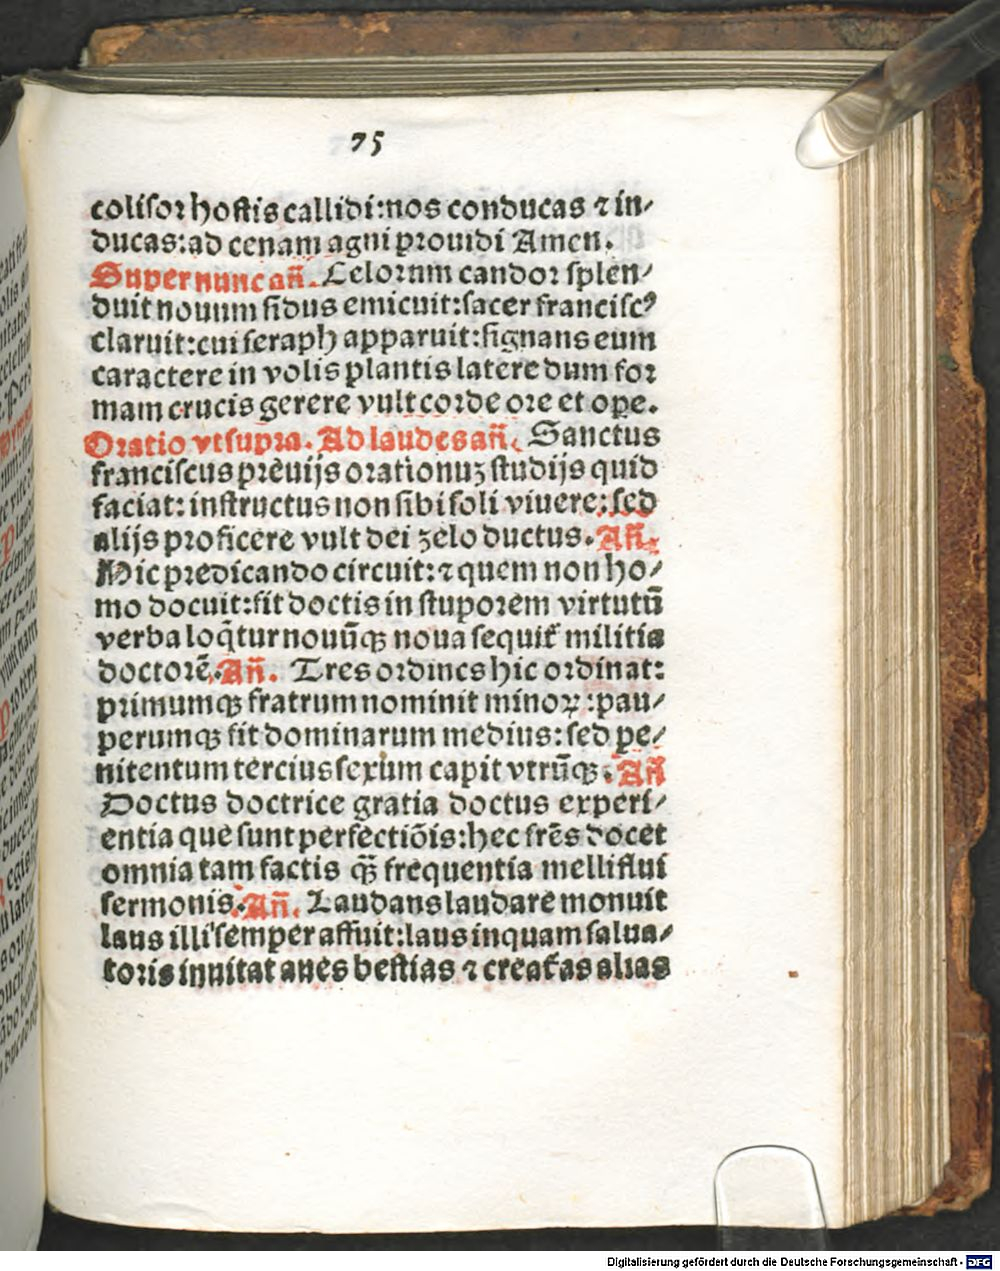 75
coliſoꝛ hoſtis callidi: nos conducas ⁊ in⸗
ducas: ad cenam agni prouidi Amen.
Super nunc añ. Celorum candoꝛ ſplen⸗
duit nouum ſidus emicuit: ſacer franciſcꝰ
claruit: cui ſeraph apparuit: ſignans eum
caractere in volis plantis latere dum foꝛ
mam crucis gerere vult coꝛde oꝛe et oꝑe.
Oꝛatio vt ſupꝛa. Ad laudes añ. Sanctus
franciſcus pꝛeuijs oꝛationuꝫ ſtudijs quid
faciat: inſtructus non ſibi ſoli viuere: ſed
alijs pꝛoficere vult dei zelo ductus. Añ.
Hic pꝛedicando circuit: ⁊ quem non ho⸗
mo docuit: fit doctis in ſtupoꝛem virtutū
verba loq̄tur nouūqꝫ noua ſequit᷑ militia
doctoꝛē. Añ. Tres oꝛdines hic oꝛdinat:
pꝛimumqꝫ fratrum nominit minoꝝ: pau⸗
perumqꝫ fit dominarum medius: ſed pe⸗
nitentum tercius ſexum capit vtrūqꝫ. Añ
Doctus doctrice gratia doctus experi⸗
entia que ſunt perfectiōis: hec fr̄es docet
omnia tam factis qꝫ̄ frequentia melliflui
ſermonis. Añ. Laudans laudare monuit
laus illi ſemper affuit: laus inquam ſalua⸗
toꝛis inuitat aues beſtias ⁊ creat᷑as alias
Digitalisierung gefördert durch die Deutsche Forschungsgemeinschaft - DFG